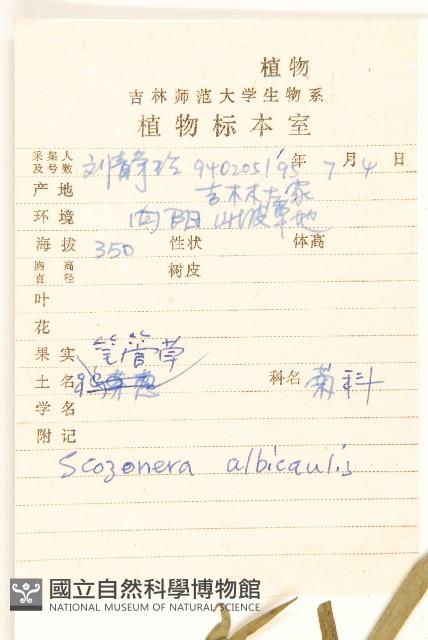 植物
吉林师范大学生物系
植物标本室
采集人及号数 刘静玲 9402051 '95年 7月 4日
产地 吉林 家
环境 向阳山坡草地
海拔 350 性状 体高
胸高直径 树皮
叶
花
果实 笔管草
土名 科名 菊科
学名
附记
Scozonera albicaulis
國立自然科學博物館
NATIONAL MUSEUM OF NATURAL SCIENCE